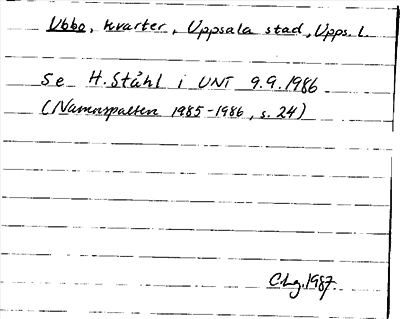 Ubbo, kvarter, Uppsala stad, Upps. l.
Se H. Ståhl i UNT 9.9.1986
(Namnspalten 1985-1986, s. 24)
C.Lg. 1987.